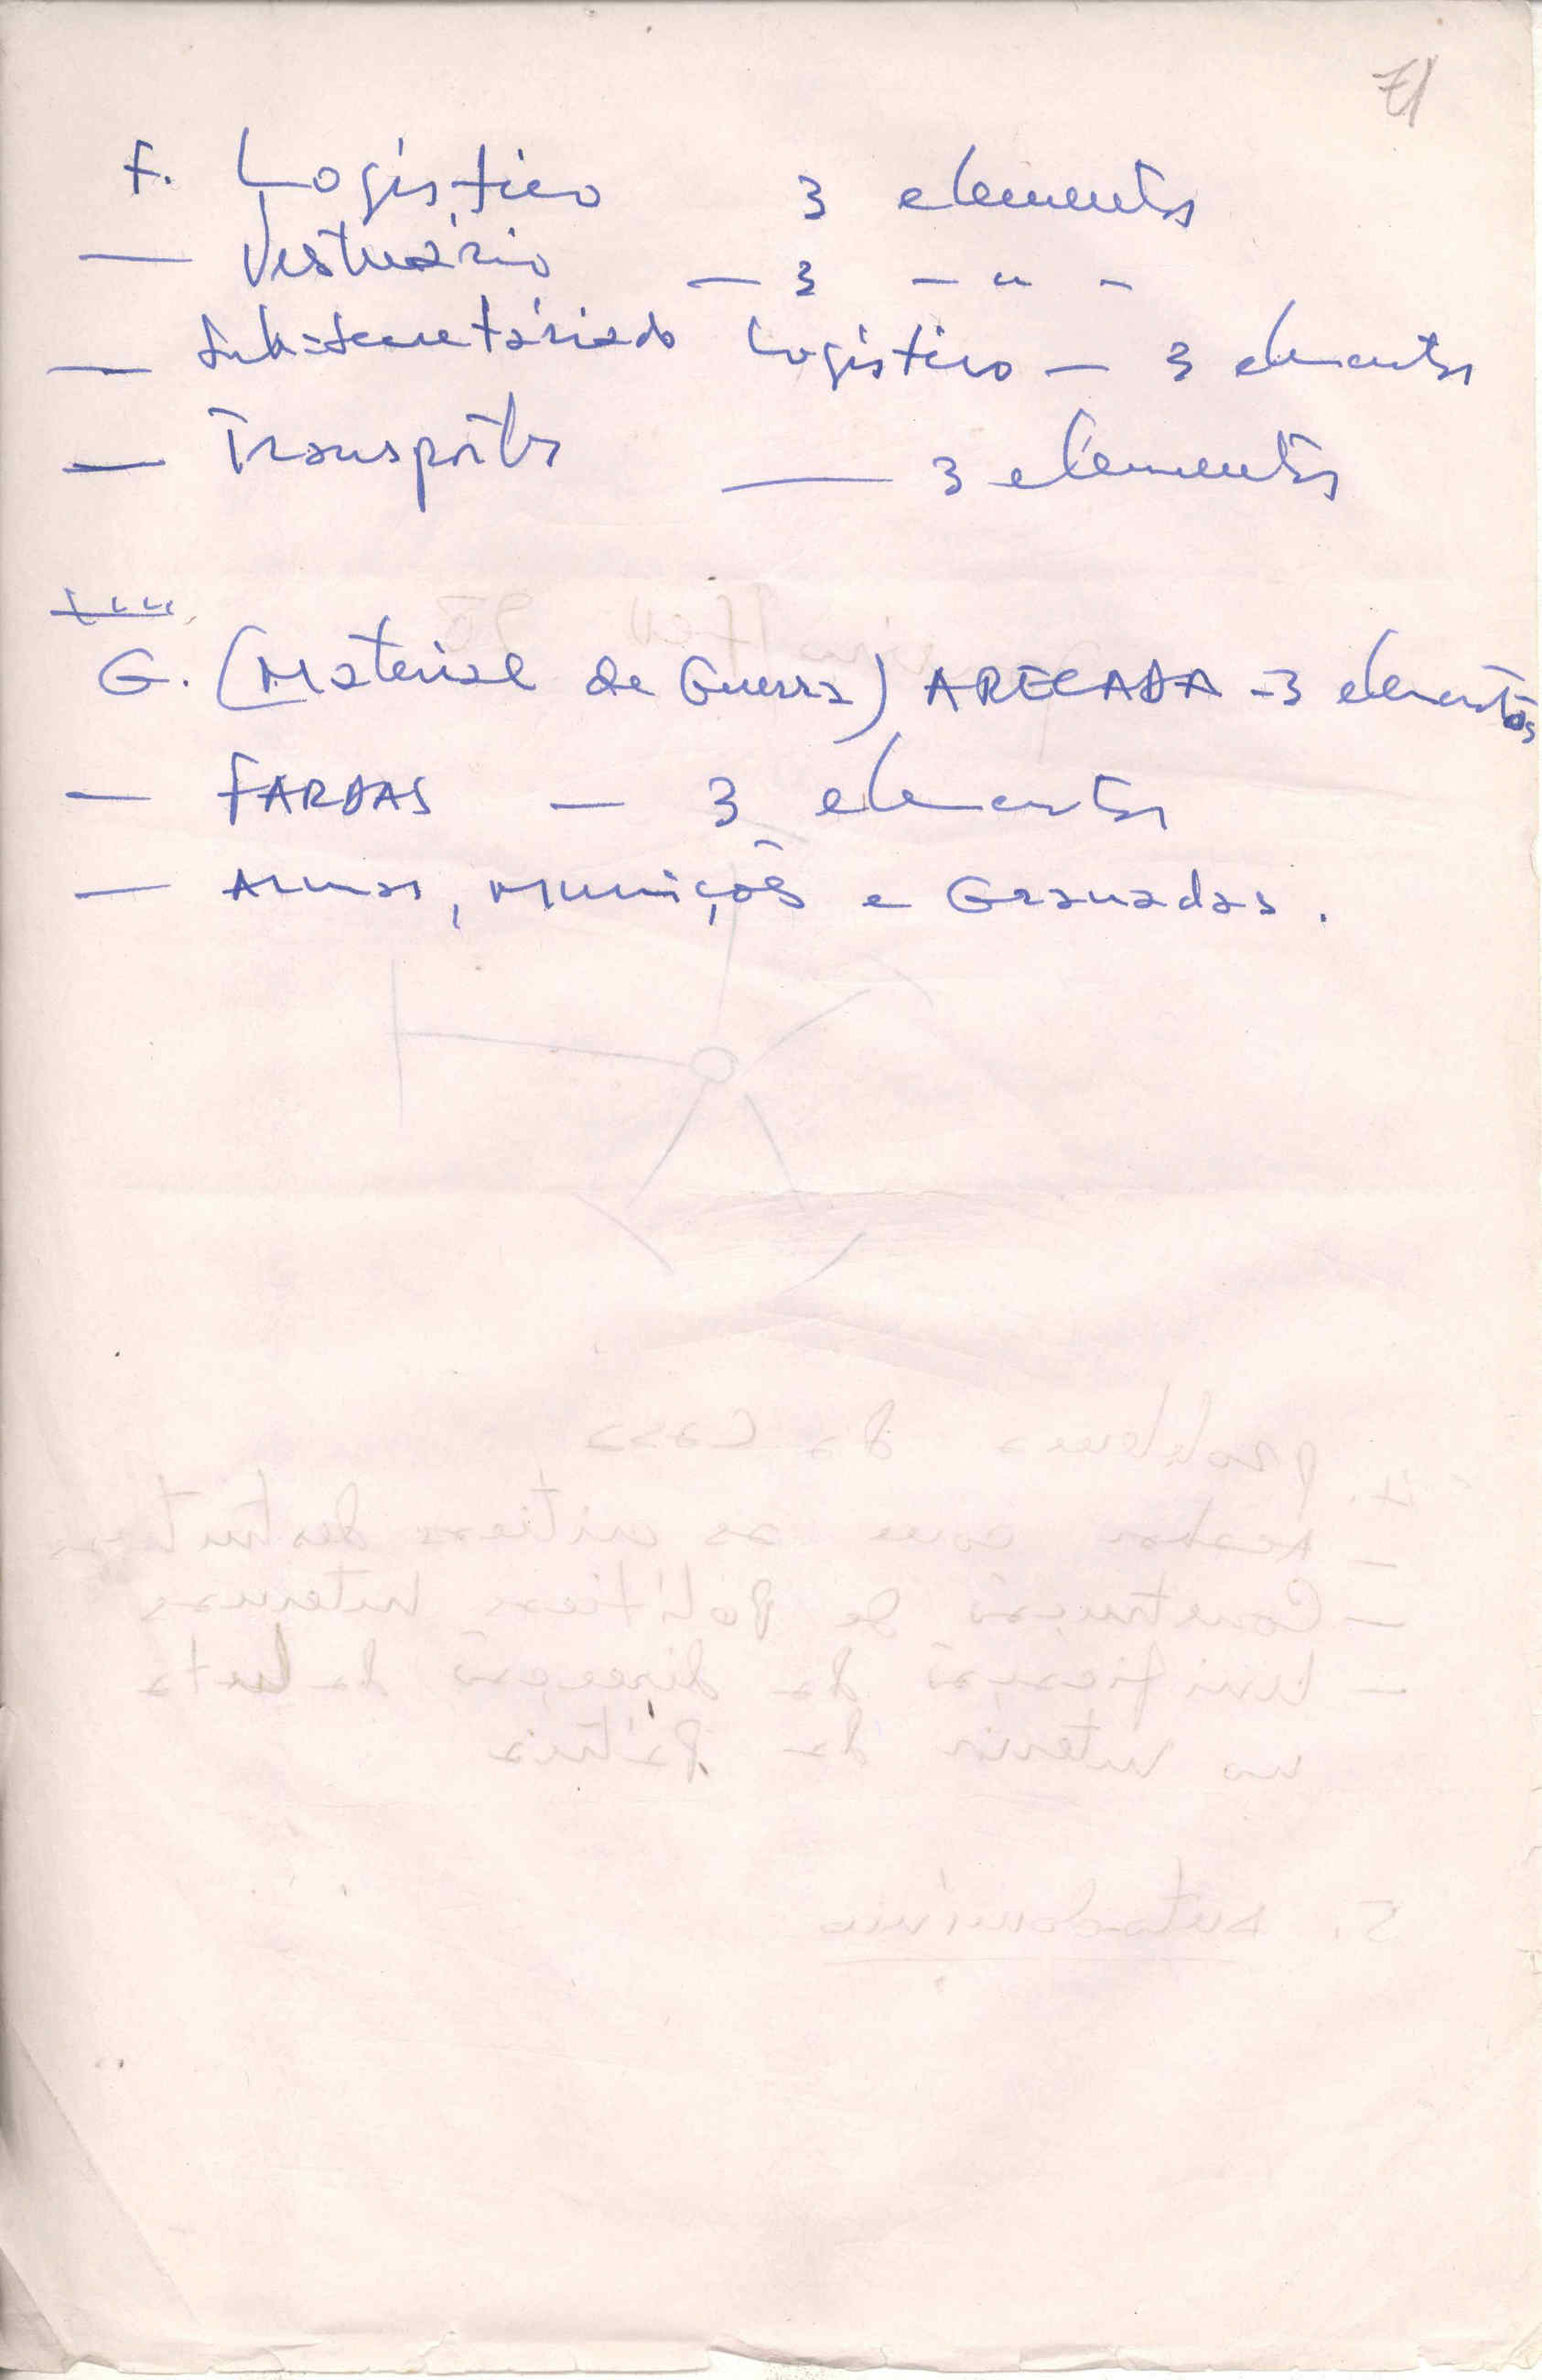 71
F. Logístico 3 elementos
— Vestuário — 3 — " —
— Sub-secretáriado Logístico — 3 elementos
— Transportes — 3 elementos
G. (Material de Guerra) ARECADA - 3 elementos
— FARDAS — 3 elementos
— Armas, Munições e Granadas.